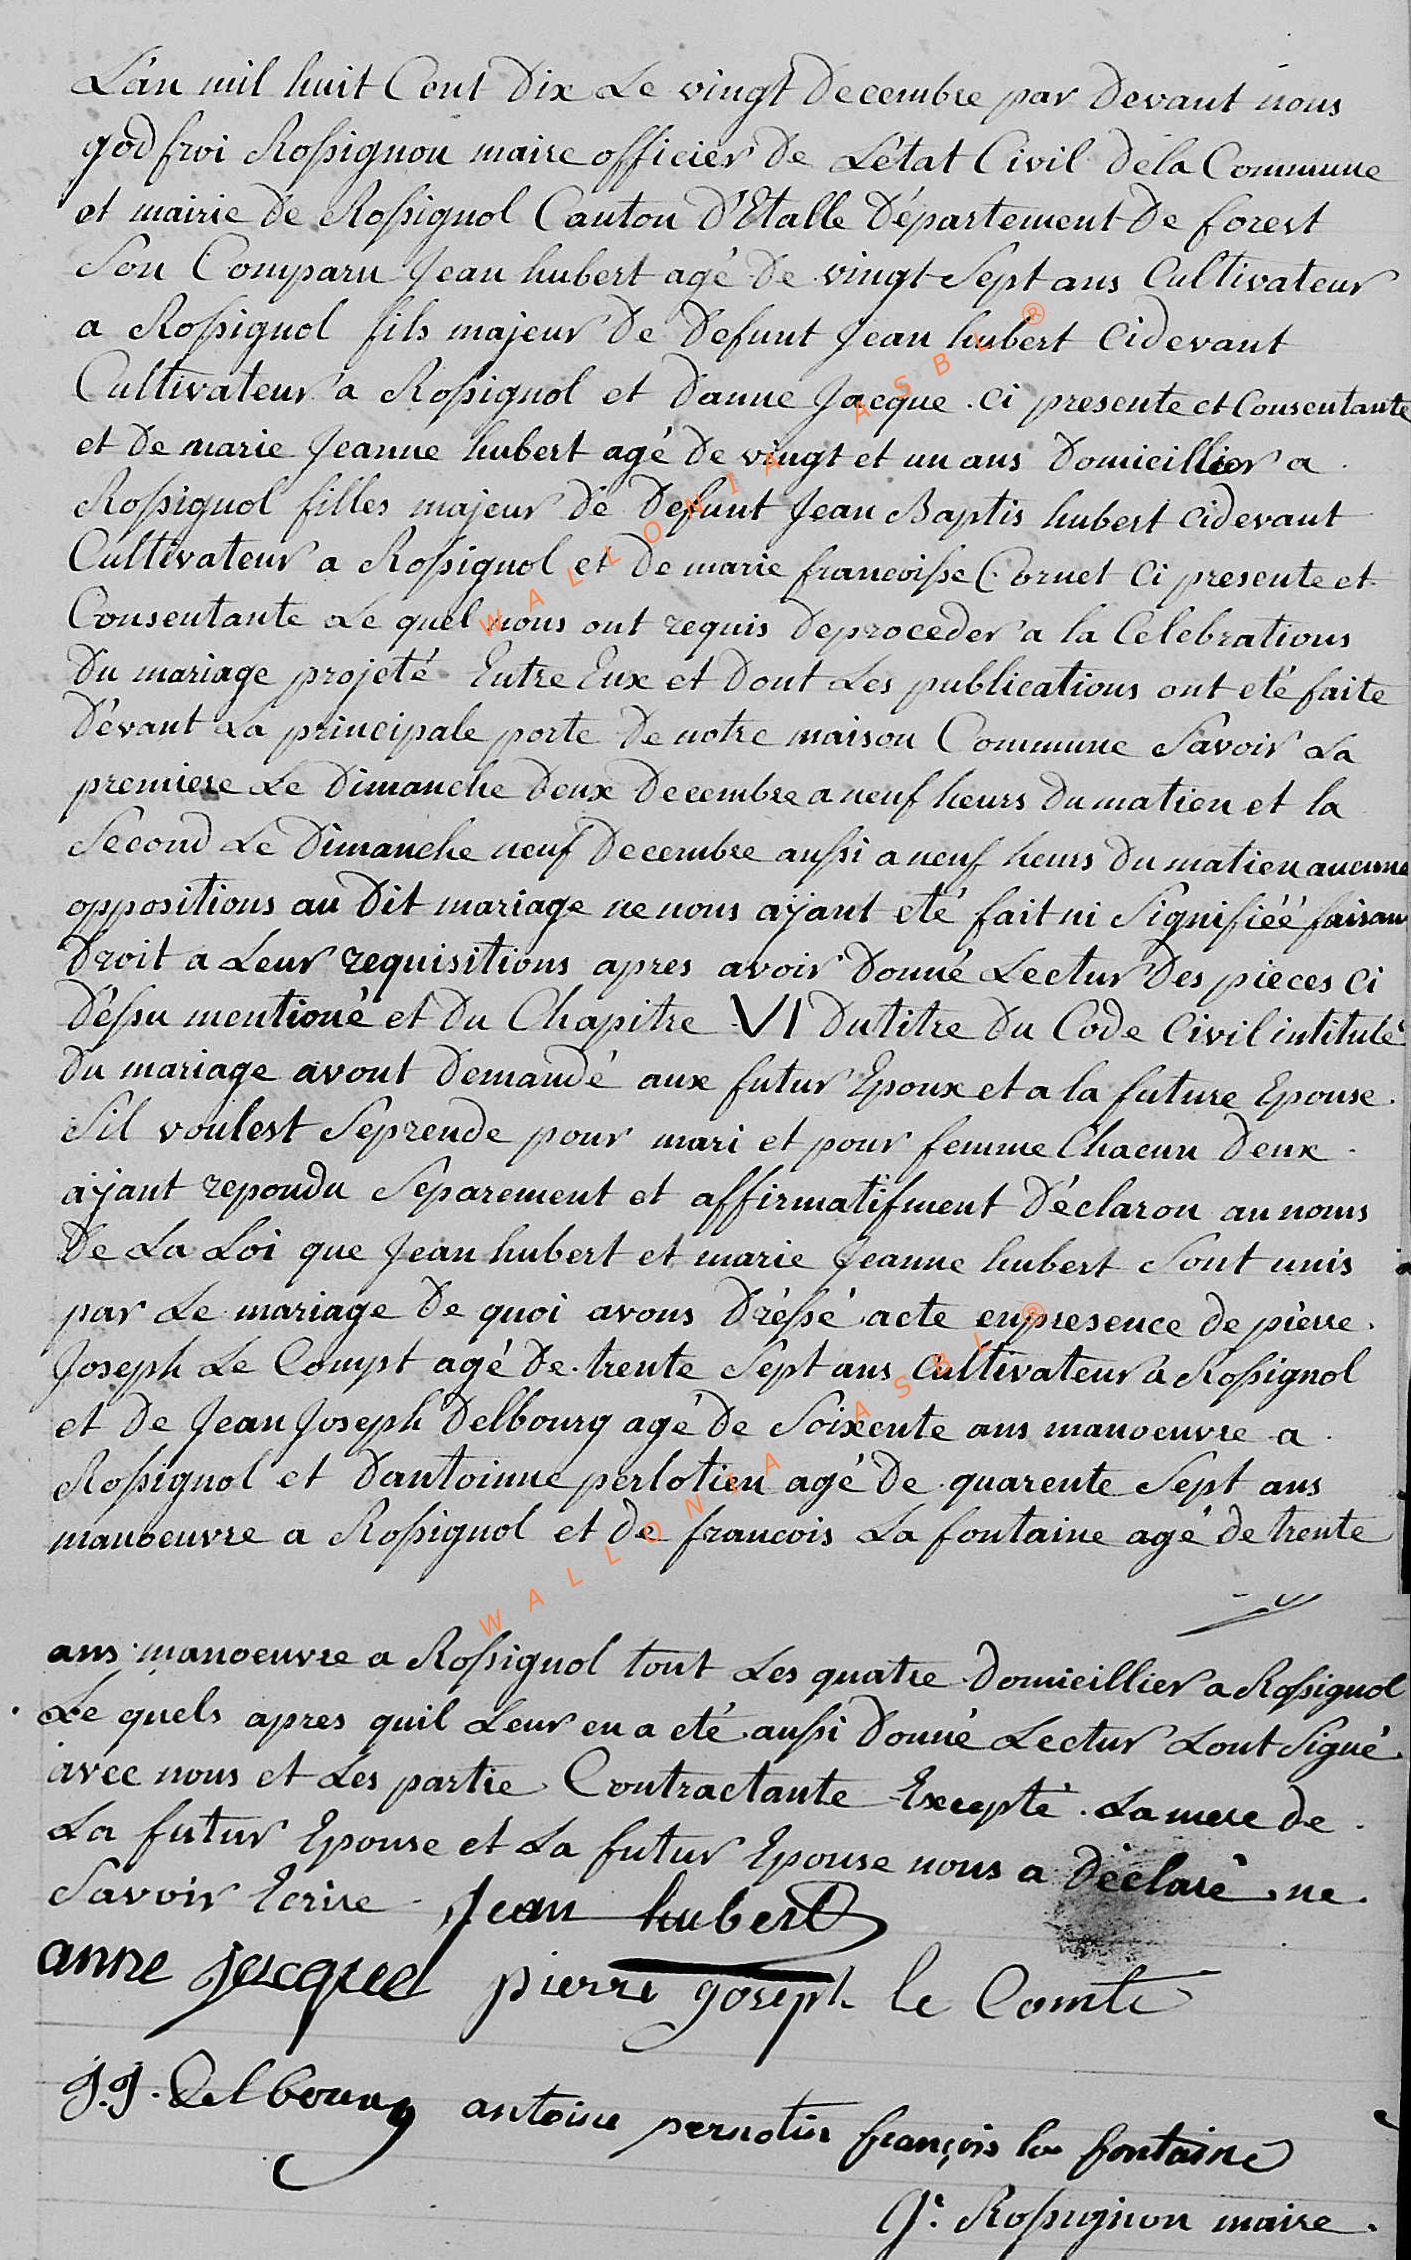 L'an mil huit Cent Dix Le vingt Decembre par Devant nous
godfroi Rossignon maire officier De L'état Civil dela Commune
et mairie de Rossignol Canton D'Etalle Département De forest
Son Comparu Jean hubert agé De vingt Sept ans Cultivateur
a Rossignol fils majeur De Defunt Jean hubert Cidevant
Cultivateur a Rossignol et Danne Jacque ci presente et Consentante
et De marie Jeanne hubert agé De vingt et un ans Domicillier a
Rossignol filles majeur de Defunt Jean Baptis hubert Cidevant
Cultivateur a Rossignol et De marie francoisse Cornet Ci presente et
Consentante Le quel nous ont requis Deproceder a la Celebrations
Du mariage projeté Entre Eux et Dont Les publications ont eté faite
Dévant La principale porte De notre maison Commune Savoir La
premiere Le Dimanche Deux Decembre a neuf heurs Du matien et la
Second Le Dimanche neuf Decembre aussi a neuf heurs Du matien aucune
oppositions au Dit mariage ne nous ajant eté fait ni Signifiéé faisan
Droit a Leur requisitions apres avoir Donné Lectur Des pieces Ci
Déssu mentioné et Du Chapitre VI Dutitre Du Code Civil intitulé
Du mariage avont Demandé aux futur Epoux et a la future Epouse
Sil voulest Seprende pour mari et pour femme Chacun Deux
ajant repondu Separement et affirmatifment Déclaron au noms
De La Loi que Jean hubert et marie Jeanne hubert Sont unis
par Le mariage De quoi avons Dréssé acte enpresence de piérre
Joseph Le Compt agé De trente Sept ans Cultivateur a Rossignol
et De Jean Joseph Delbourg agé De Soixente ans manoeuvre a
Rossignol et Dantoinne perlotien agé De quarente Sept ans
manoeuvre a Rossignol et de francois La fontaine agé de trente
ans manoeuvre a Rossignol tout Les quatre Domicillier a Rossignol
Le quels apres quil Leur en a eté aussi Donné Lectur Lont Signé
avec nous et Les partie Contractante Excepté La mere de
La futur Epouse et La futur Epouse nous a Déclaré ne
Savoir Ecrire Jean hubert
anne jacques pierre joseph le Comte
J.J. Delbourg antoine pernotin françois la fontaine
G. Rossignon maire
WALLONIA ASBL ®
WALLONIA ASBL ®